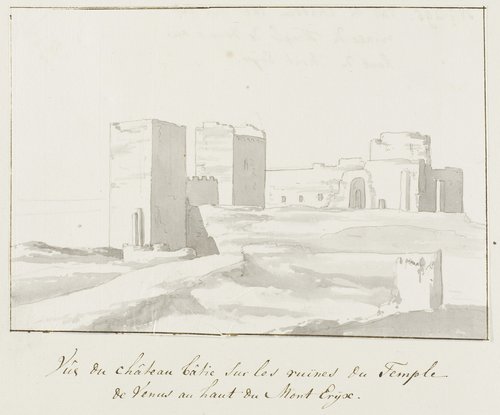 Vûë du château bâtie sur les ruines du Temple
de Venus au haut du Mont Eryx.